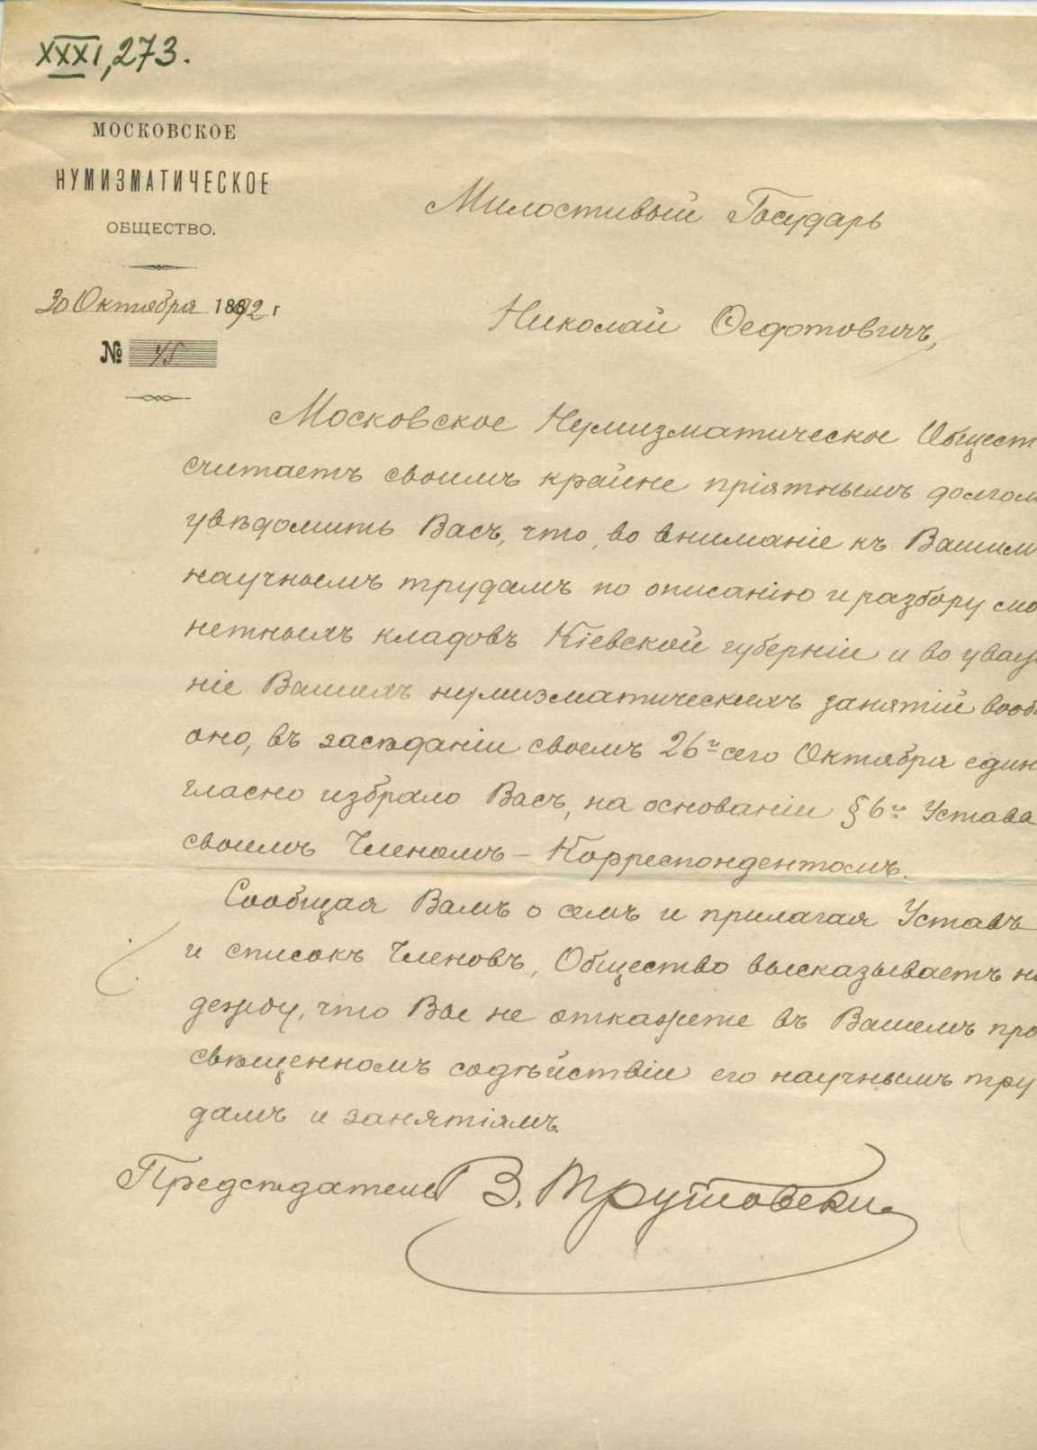 XXXI, 273.
МОСКОВСКОЕ
НУМИЗМАТИЧЕСКОЕ
ОБЩЕСТВО.
30 Октября 1892 г
№ 45
Милостивый Государь
Николай Ѳедотовичъ,
Московское Нумизматическое Общест
считаетъ своимъ крайне пріятнымъ долгом
увѣдомить Васъ, что, во вниманіе къ Вашим
научнымъ трудамъ по описанію и разбору мо
нетныхъ кладовъ Кіевской губерніи и во уваж
ніе Вашихъ нумизматическихъ занятій вооб
оно, въ засѣданіи своемъ 26го сего Октября един
гласно избрало Васъ, на основаніи § 6го Устава
своимъ Членомъ – Корреспондентомъ.
Сообщая Вамъ о семъ и прилагая Уставъ
и списокъ Членовъ, Общество высказываетъ на
дежду, что Вы не откажете въ Вашемъ про
свѣщенномъ содѣйствіи его научнымъ тру
дамъ и занятіямъ.
Предсѣдатель В. Трутовскій